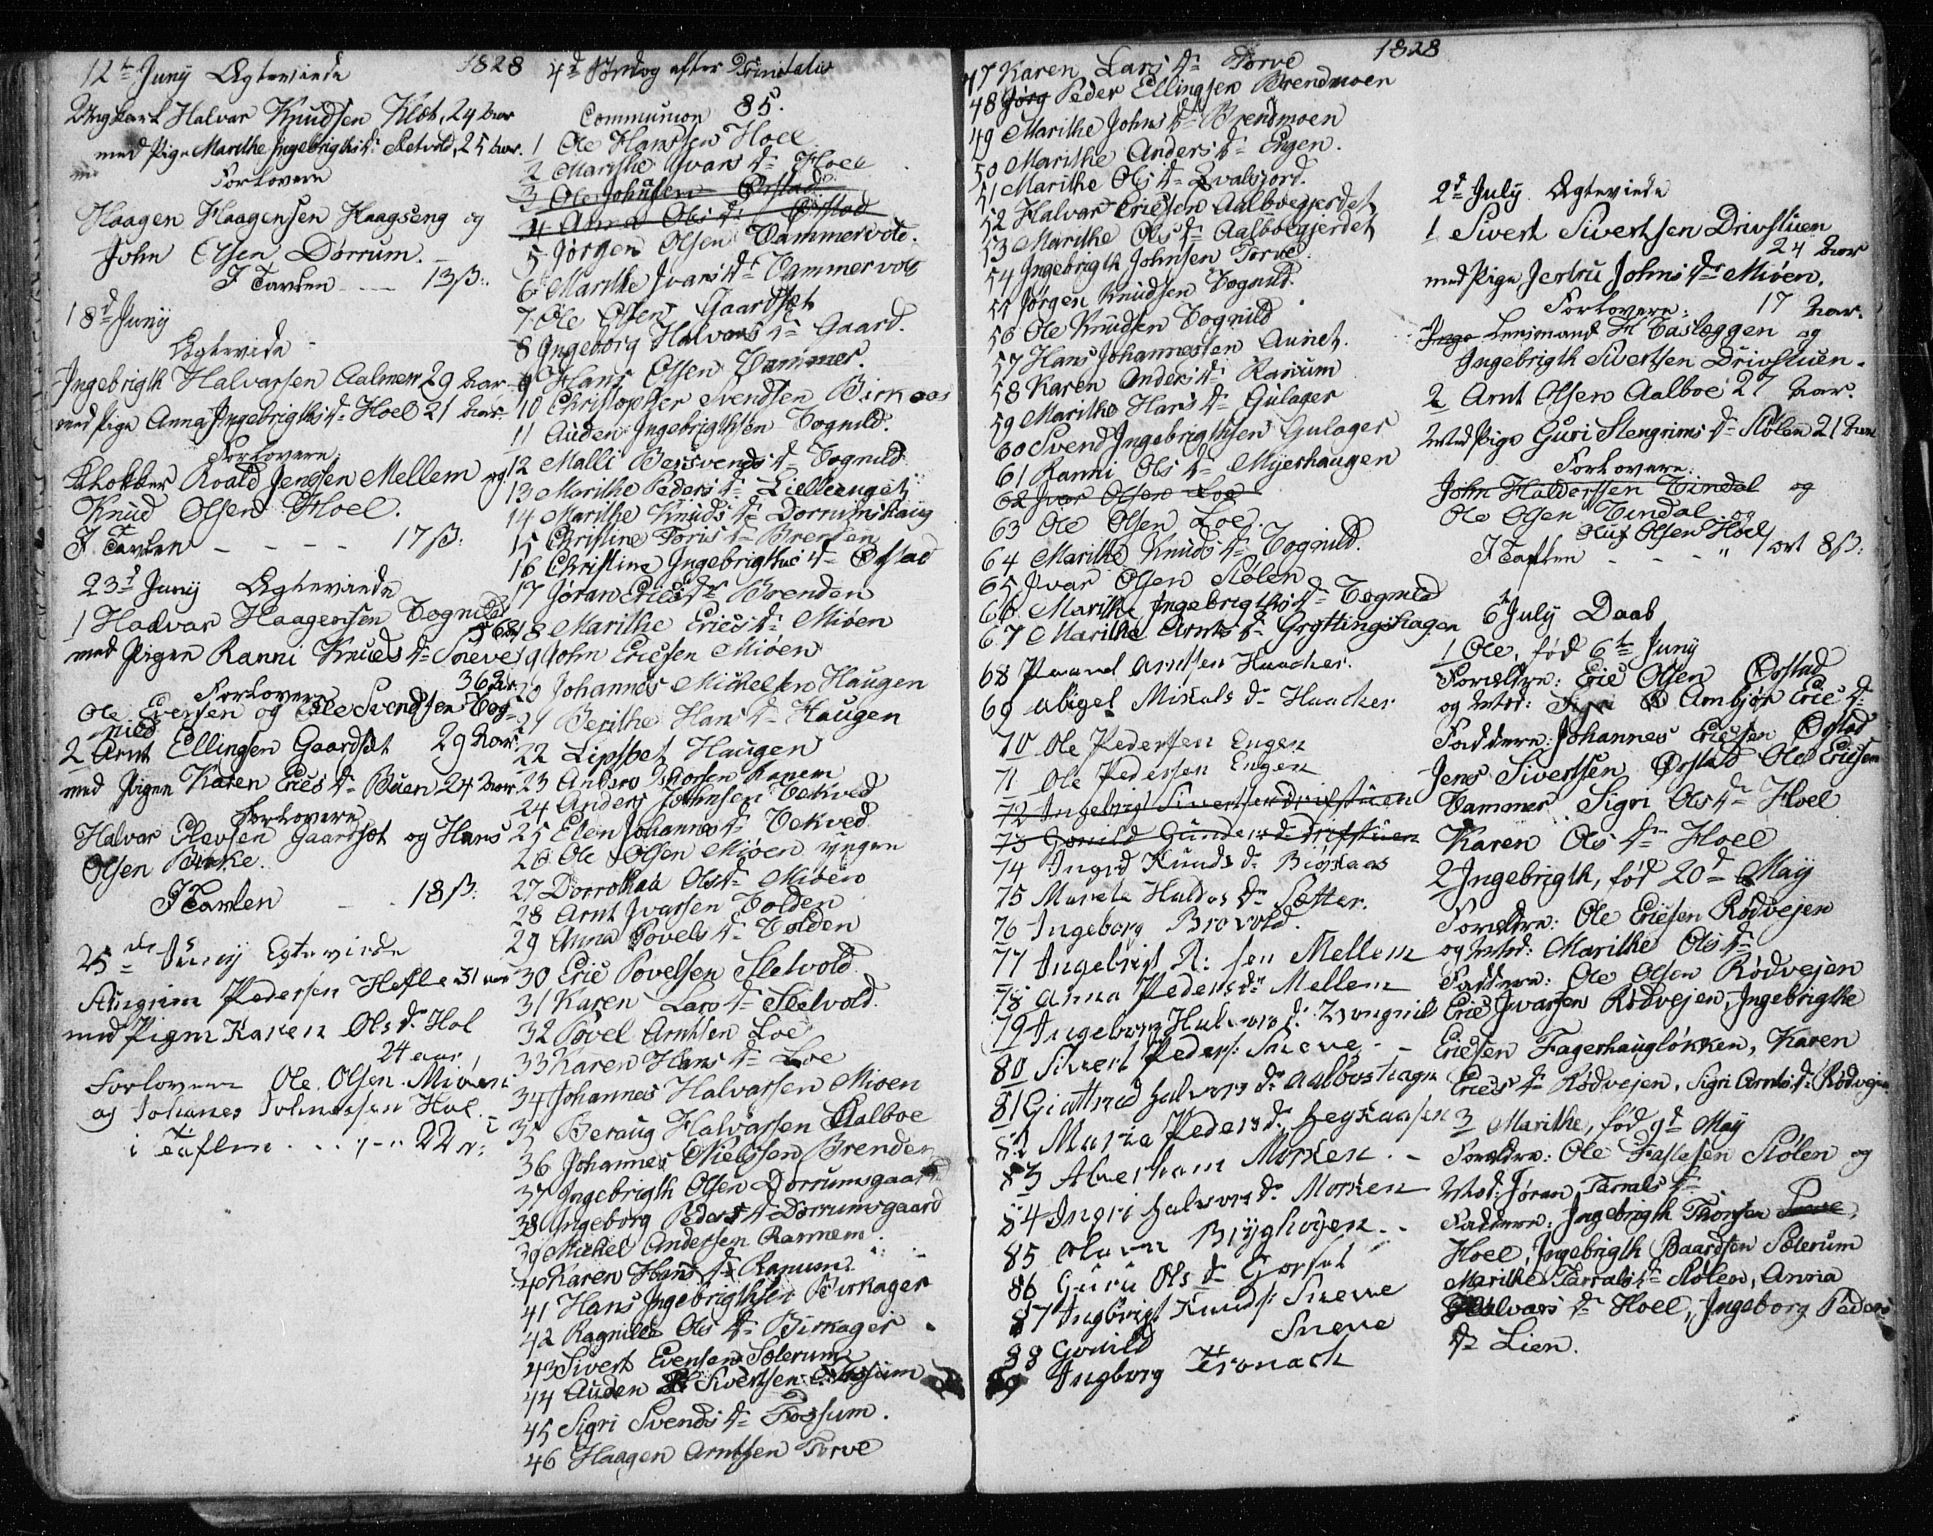 12te Juny Ægteviede 1828
Ungkarl Halvar Knudsen Klæt, 24 Aar
med Pige Marithe Ingebrigths Dr Sletvold, 25 Aar.
Forlovere
Haagen Haagensen Haagseng og
John Olsen Dørrum.
I Tavlen - - 13 ß:
18d Juny
Ægteviede
Ingebrigth Halvarsen Aalmen 29 Aar
med Pige Anna Ingebrigths Dr Hoel 21 Aar
Forlovere
Klokker Roald Jenssen Mellem og
Knud Olsen Hoel.
I Tavlen - - - - 17 ß:
23d Juny Ægteviede
1 Halvar Haagensen Tognild
med Pigen Ranni Knuds Dr Sneve
36 Aar
Forlovere
Ole Evensen og Ole Svendsen Tog-
nild
2 Arnt Ellingsen Gaardsæt 29 Aar.
med Pigen Karen Erics Dr Buen 24 Aar
Forlovere
Halvar Olevsen Gaardsæt og Hans
Olsen Bække.
I Tavlen - - 18 ß:
25de Juny Egteviede
Pedersen Hefle 31 aar
med Pigen Karen Ols Dr Hol
24 aar
Forlovere Ole Olsen Miøen
og Johanes Johnessen Hol
i Taflen . . . . 22 ß:
4d Søndag efter Trinitatis
Communion 85.
1 Ole Hanssen Hoel
2 Marithe Ivars Dr Hoel
3 Ole Johnsen Ørstad
4 Anna Ols Dr Ørstad
5 Jørgen Olsen Vammervold.
6 Marithe Ivars Dr Vammervold
7 Ole Olsen Gaardsæt
8 Ingeborg Halvars Dr Gaard.
9 Hans Olsen Vammer.
10 Christopher Svendsen Birkaas
11 Auden Ingebrigthsen Tognild.
12 Malli Bersvends Dr Tognild
13 Marithe Peders Dr Lilleenget
14 Marithe Knuds Dr Dorrumshaug
15 Christine Toris Dr Brenden
16 Christine Ingebrigths Dr Ørstad
17 Jøran Erics Dr Brenden
18 Marithe Erics Dr Miøen
19 John Ericsen Miøen
20 Johannes Mickelsen Haugen
21 Berithe Hans Dr Haugen
22 Lipsbet Haugen
23 Anders Ranem
24 Anders Johnsen Vekved
25 Elen Johannes Dr Vekved
26 Ole Olsen Miøen yngre
27 Dorrothea Ols Dr Miøen
28 Arnt Ivarsen Tolden
29 Anna Povels Dr Tolden
30 Eric Povelsen Sletvold
31 Karen Lars Dr Sletvold.
32 Povel Arntsen Loe
33 Karen Hans Dr Loe
34 Johannes Halvarsen Mioen
35 Beraug Halvarssen Aalboe
36 Johannes Nielssen Brenden
37 Ingebrigth Olsen Dørrumsgaard
38 Ingeborg Peders Dr Dørrumsgaard
39 Mickel Andersen Rannem
40 Karen Hans Dr Ranum
41 Hans Ingebrigthsen Birkager
42 Ragnild Ols Dr Birkager
43 Sivert Evensen Sølerum
44 Auden Sivertsen Fossum
45 Sigri Svends Dr Fossum.
46 Haagen Arntsen Torve
1828
47 Karen Lars Dr Torve
48 Jørg Peder Ellingsen Brendmoen
49 Marithe Johns Dr Brendmoen
50 Marithe Anders Dr Engen.
51 Marithe Ols Dr Hvalsjord.
52 Halvar Ericsen Aalboegjerdet
53 Marithe Ols Dr Aalboegjerdet
54 Ingebrigth Johnsen Torve
55 Jørgen Knudsen Tognild.
56 Ole Knudsen Tognild
57 Hans Johannessen Aunet.
58 Karen Anders Dr Ranum
59 Marithe Hans Dr Gulager
60 Svend Ingebrigthsen Gulager
61 Ranni Ols Dr Myerhaugen
62 Ivar Olsen Loe
63 Ole Olsen Loe.
64 Marithe Knuds Dr Tognild.
65 Ivar Olsen Stølen
66 Marithe Ingebrigths Dr Tognild
67 Marithe Arnts Dr Gryttingshagen
68 Paavel Arntsen Haacker.
69 Abigel Mikals Dr Haacker
70 Ole Pedersen Engen
71 Ole Pedersen Engen
72 Ingebrigt Sivertsen Drifstuen
73 Gonild Gunders Dr Drifstuen
74 Ingrd Knuds Dr Biørkaas
75 Marete Haldos Dr Sætter.
76 Ingeborg Brovold.
77 Ingebrigt R: sen Mellem
78 Anna Peders Dr Mellem
79 Ingeborg Halvors Dr
80 Sivert Peders: Sneve - -
81 Giertrud Halvors Dr Aalboshagn
82 Marta Peders Dr
83 Aberham Morken . -
84 Ingri Halvors Dr Morken
85 Bryghøyen - .
86 Guru Ols Dr Gorset
87 Ingbrigt Knuds: Sneve
88 Gonild Sneve
89 Ingborg Tronack
2d July Ægteviede
1 Sivert Sivertsen Drivstuen
24 Aar
med Pige Jertru Johns Dr Miøen.
17 Aar.
Forlovere:
Inge Lensmand H Casleggen og
Ingebrigth Sivertsen Drivstuen.
2 Arnt Olsen Aalboe 27 Aar.
Med Pige Guri Stengrims Dr Stølen 21 Aar
Forlovere:
John Haldorssen Vindal og
Ole Olsen Vindal og
Olsen Hoel
I Taflen - - " 1 ort 8 ß:
6te July Daab
1 Ole, fød 6te Juny
Forældre: Eric Olsen Ørstad
og Mod: Ambjør Erics Dr
Faddere: Johannes Ericsen Ørstad
Jens Sivertsen Ørstad Ole Ericsen
Vammer Sigri Ols Dr Hoel
Karen Ols Dr Hoel
2 Ingebrigth, fød 20d May
Forældre: Ole Ericsen Rødvejen
og Mod: Marithe Ols Dr
Faddere: Ole Olsen Rødvejen
Eric Ivarsen Rødvejen, Ingebrigth
Ericsen Fagerhaugløkken, Karen
Erics Dr Rødvejen, Sigri Arnts Dr Rødvejen
3 Marithe, fød 9d May
Forældre: Ole Haslesen Stølen og
Mod: Jøran Tarrals Dr
Faddere: Ingebrigth Thorsen
Hoel, Ingebrigth Baardsen Sølerum
Marithe Tarrals Dr Stølen, Anna
Halvars Dr Hoel, Ingeborg Peders
Dr Lien.